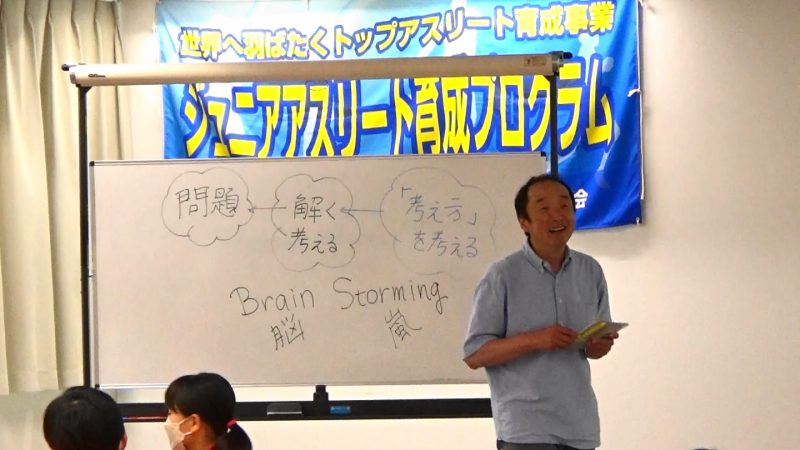 世界へ羽ばたくトップアスリート育成事業
ジュニアアスリート育成プログラム
会
問題
解く
考える
「考え方」
を考える
Brain Storming
脳 嵐